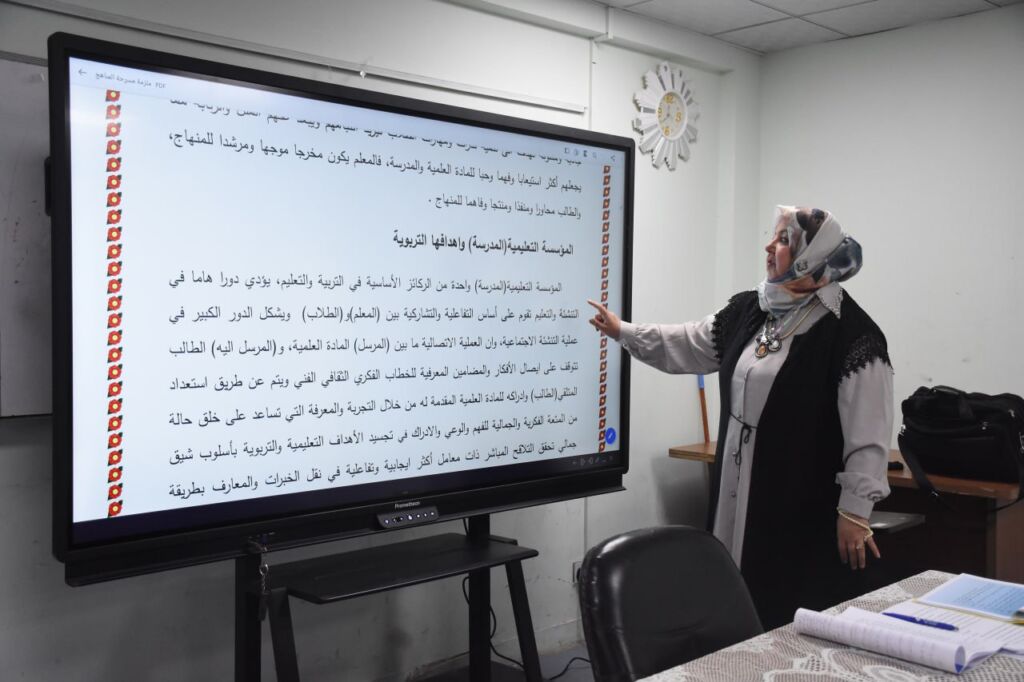 ملزمة مسرحة المناهج PDF
يجعلهم أكثر استيعابا وفهما وحبا للمادة العلمية والمدرسة، فالمعلم يكون مخرجا موجها ومرشدا للمنهاج،
والطالب محاورا ومنفذا ومنتجا وفاهما للمنهاج .
المؤسسة التعليمية(المدرسة) واهدافها التربوية
المؤسسة التعليمية(المدرسة) واحدة من الركائز الأساسية في التربية والتعليم، يؤدي دورا هاما في
التنشئة والتعليم تقوم على أساس التفاعلية والتشاركية بين (المعلم)و(الطلاب) ويشكل الدور الكبير في
عملية التنشئة الاجتماعية، وان العملية الاتصالية ما بين (المرسل) المادة العلمية، و(المرسل اليه) الطالب
تتوقف على ايصال الأفكار والمضامين المعرفية للخطاب الفكري الثقافي الفني ويتم عن طريق استعداد
المتلقي(الطالب) وادراكه للمادة العلمية المقدمة له من خلال التجربة والمعرفة التي تساعد على خلق حالة
من المتعة الفكرية والجمالية للفهم والوعي والادراك في تجسيد الأهداف التعليمية والتربوية بأسلوب شيق
جمالي تحقق التلاقح المباشر ذات معامل أكثر ايجابية وتفاعلية في نقل الخبرات والمعارف بطريقة
Promethean